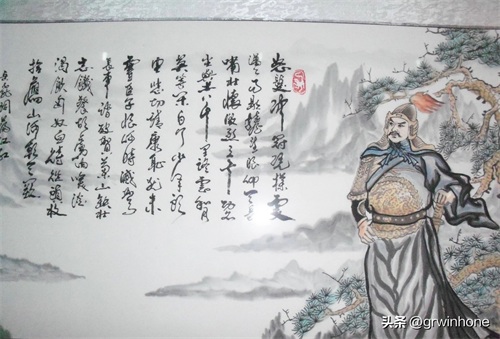 怒髮冲冠凭欄處
瀟瀟雨歇抬望眼仰天長
嘯壯懷激烈三十功名
塵與土八千里路雲和月
莫等閑白了少年頭
空悲切靖康耻猶未
雪臣子恨何時滅駕
長車踏破賀蘭山缺壯
志饑餐胡虜肉笑談
渴飲匈奴血待從頭收
拾舊山河朝天闕
岳飛詞滿江紅
头条 @grwinhone